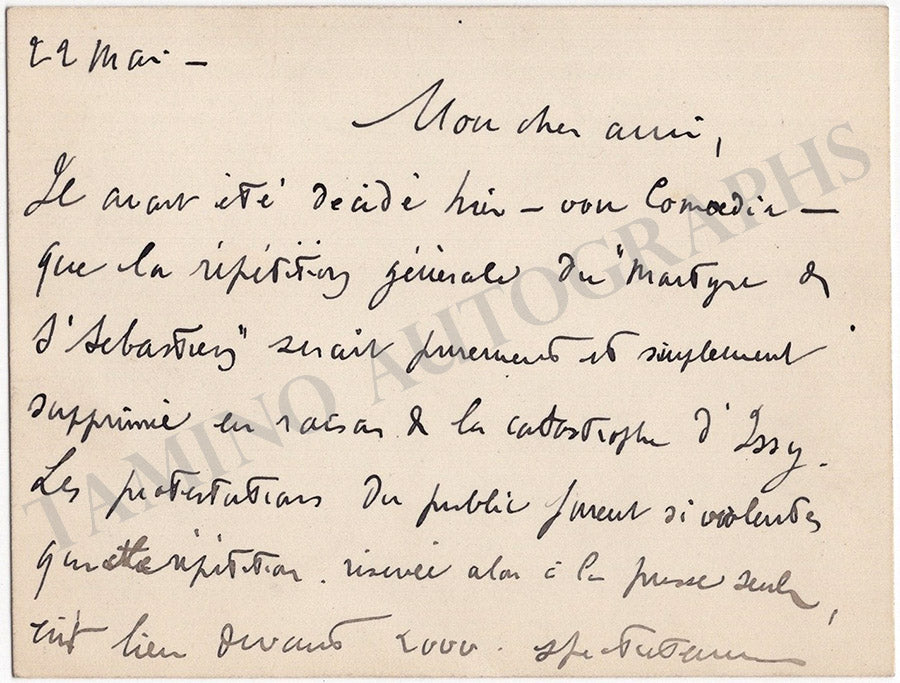 22 Mai –
Mon cher ami,
Il avait été décidé hier – voir Comœdia –
que la répétition générale du "Martyre de
St Sébastien" serait purement et simplement
supprimée en raison de la catastrophe d'Issy.
Les protestations du public furent si violentes
que cette répétition. réservée alors à la presse seule,
eut lieu devant 2000. spectateurs
TAMINO AUTOGRAPHS